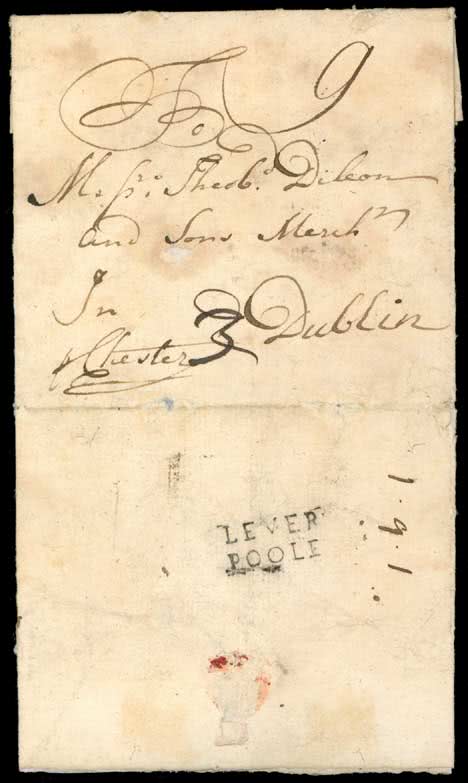 To 9
Mrssrs. Theobd. Dileon
and Sons Merchts
In
3 Dublin
p Chester
LEVER
POOLE
1.9.1.